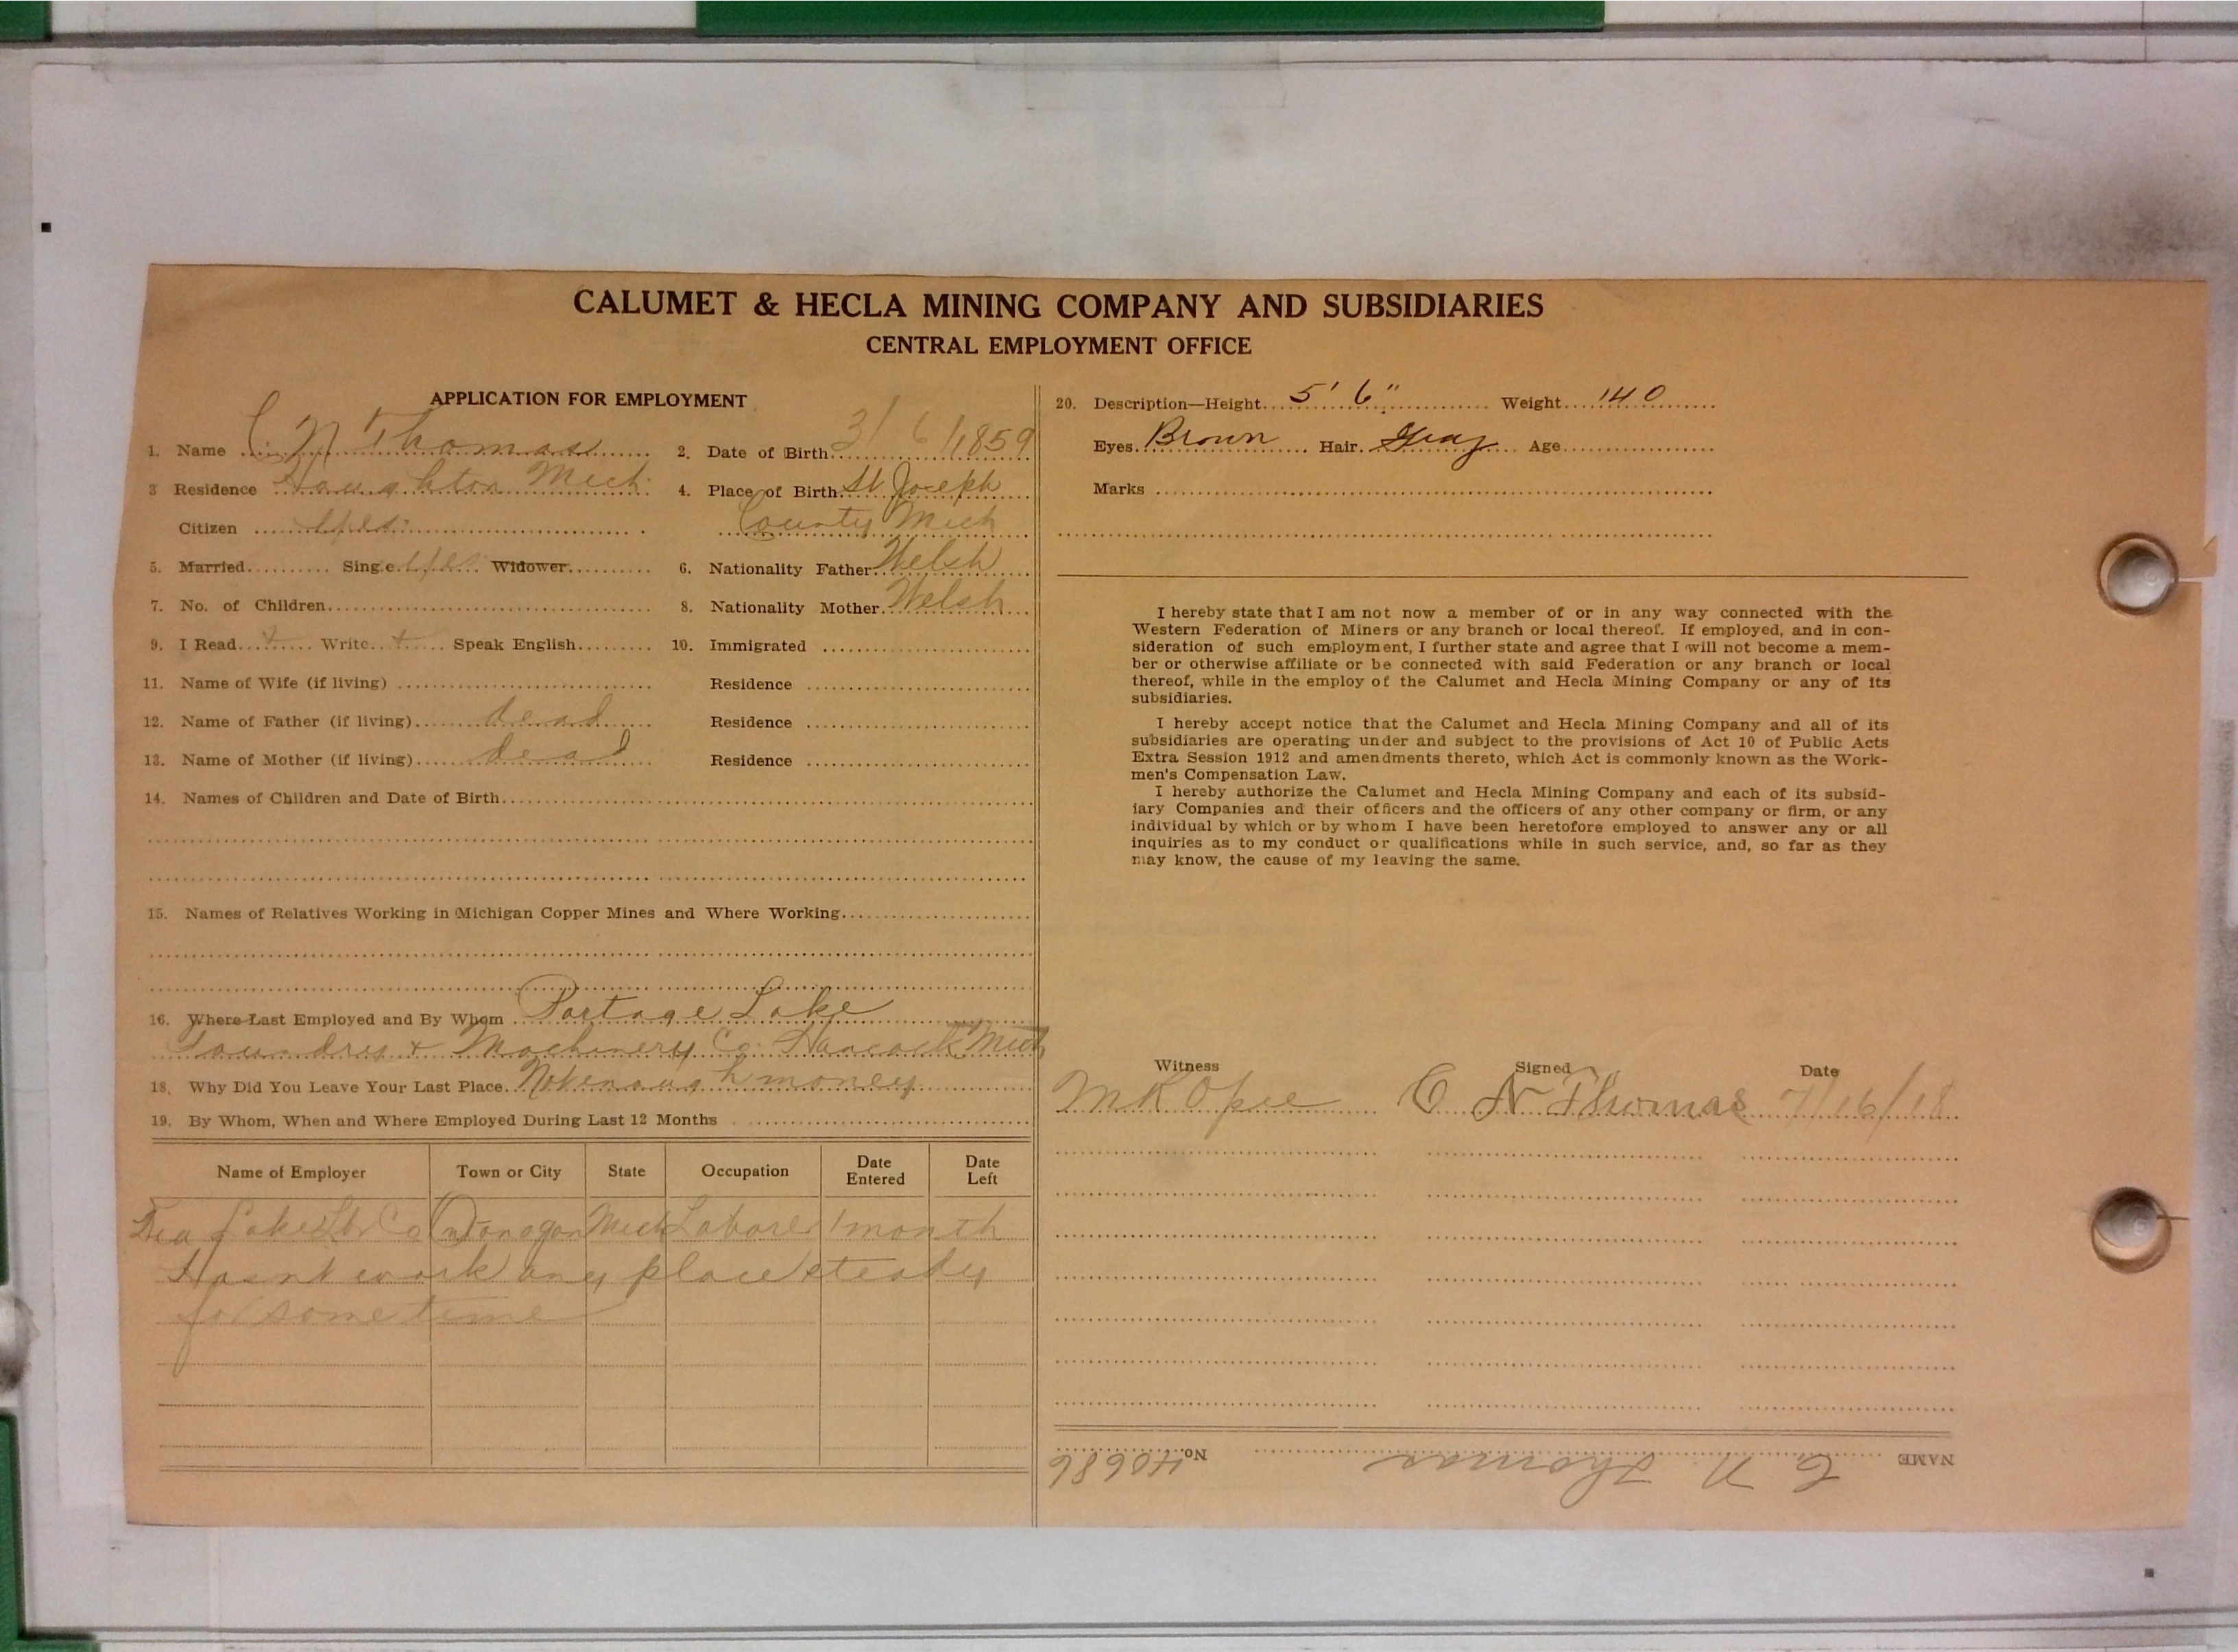 CALUMET & HECLA MINING COMPANY AND SUBSIDIARIES
CENTRAL EMPLOYMENT OFFICE
APPLICATION FOR EMPLOYMENT
1. Name C. N Thomas
2. Date of Birth 3/6/1859
3 Residence Houghton Mich
4. Place of Birth St Joseph
Citizen yes
County Mich
5. Married Single yes Widower
6. Nationality Father Welsh
7. No. of Children
8. Nationality Mother Welsh
9. I Read + Write + Speak English
10. Immigrated
11. Name of Wife (if living)
Residence
12. Name of Father (if living) dead
Residence
13. Name of Mother (if living) dead
Residence
14. Names of Children and Date of Birth
15. Names of Relatives Working in Michigan Copper Mines and Where Working
16. Where Last Employed and By Whom Portage Lake
Foundry & Machinery Co. Hancock Mich
18. Why Did You Leave Your Last Place Not enough money
19. By Whom, When and Where Employed During Last 12 Months
Name of Employer Town or City State Occupation Date Entered Date Left
Lake Co Ontonagon Mich Laborer 1 month
Hasnt work any place steady
for some time
20. Description—Height 5' 6" Weight 140
Eyes Brown Hair Gray Age
Marks
I hereby state that I am not now a member of or in any way connected with the
Western Federation of Miners or any branch or local thereof. If employed, and in con-
sideration of such employment, I further state and agree that I will not become a mem-
ber or otherwise affiliate or be connected with said Federation or any branch or local
thereof, while in the employ of the Calumet and Hecla Mining Company or any of its
subsidiaries.
I hereby accept notice that the Calumet and Hecla Mining Company and all of its
subsidiaries are operating under and subject to the provisions of Act 10 of Public Acts
Extra Session 1912 and amendments thereto, which Act is commonly known as the Work-
men's Compensation Law.
I hereby authorize the Calumet and Hecla Mining Company and each of its subsid-
iary Companies and their officers and the officers of any other company or firm, or any
individual by which or by whom I have been heretofore employed to answer any or all
inquiries as to my conduct or qualifications while in such service, and, so far as they
may know, the cause of my leaving the same.
Witness Signed Date
M R Opie C N Thomas 7/16/18
NAME C. N. Thomas No. 40686